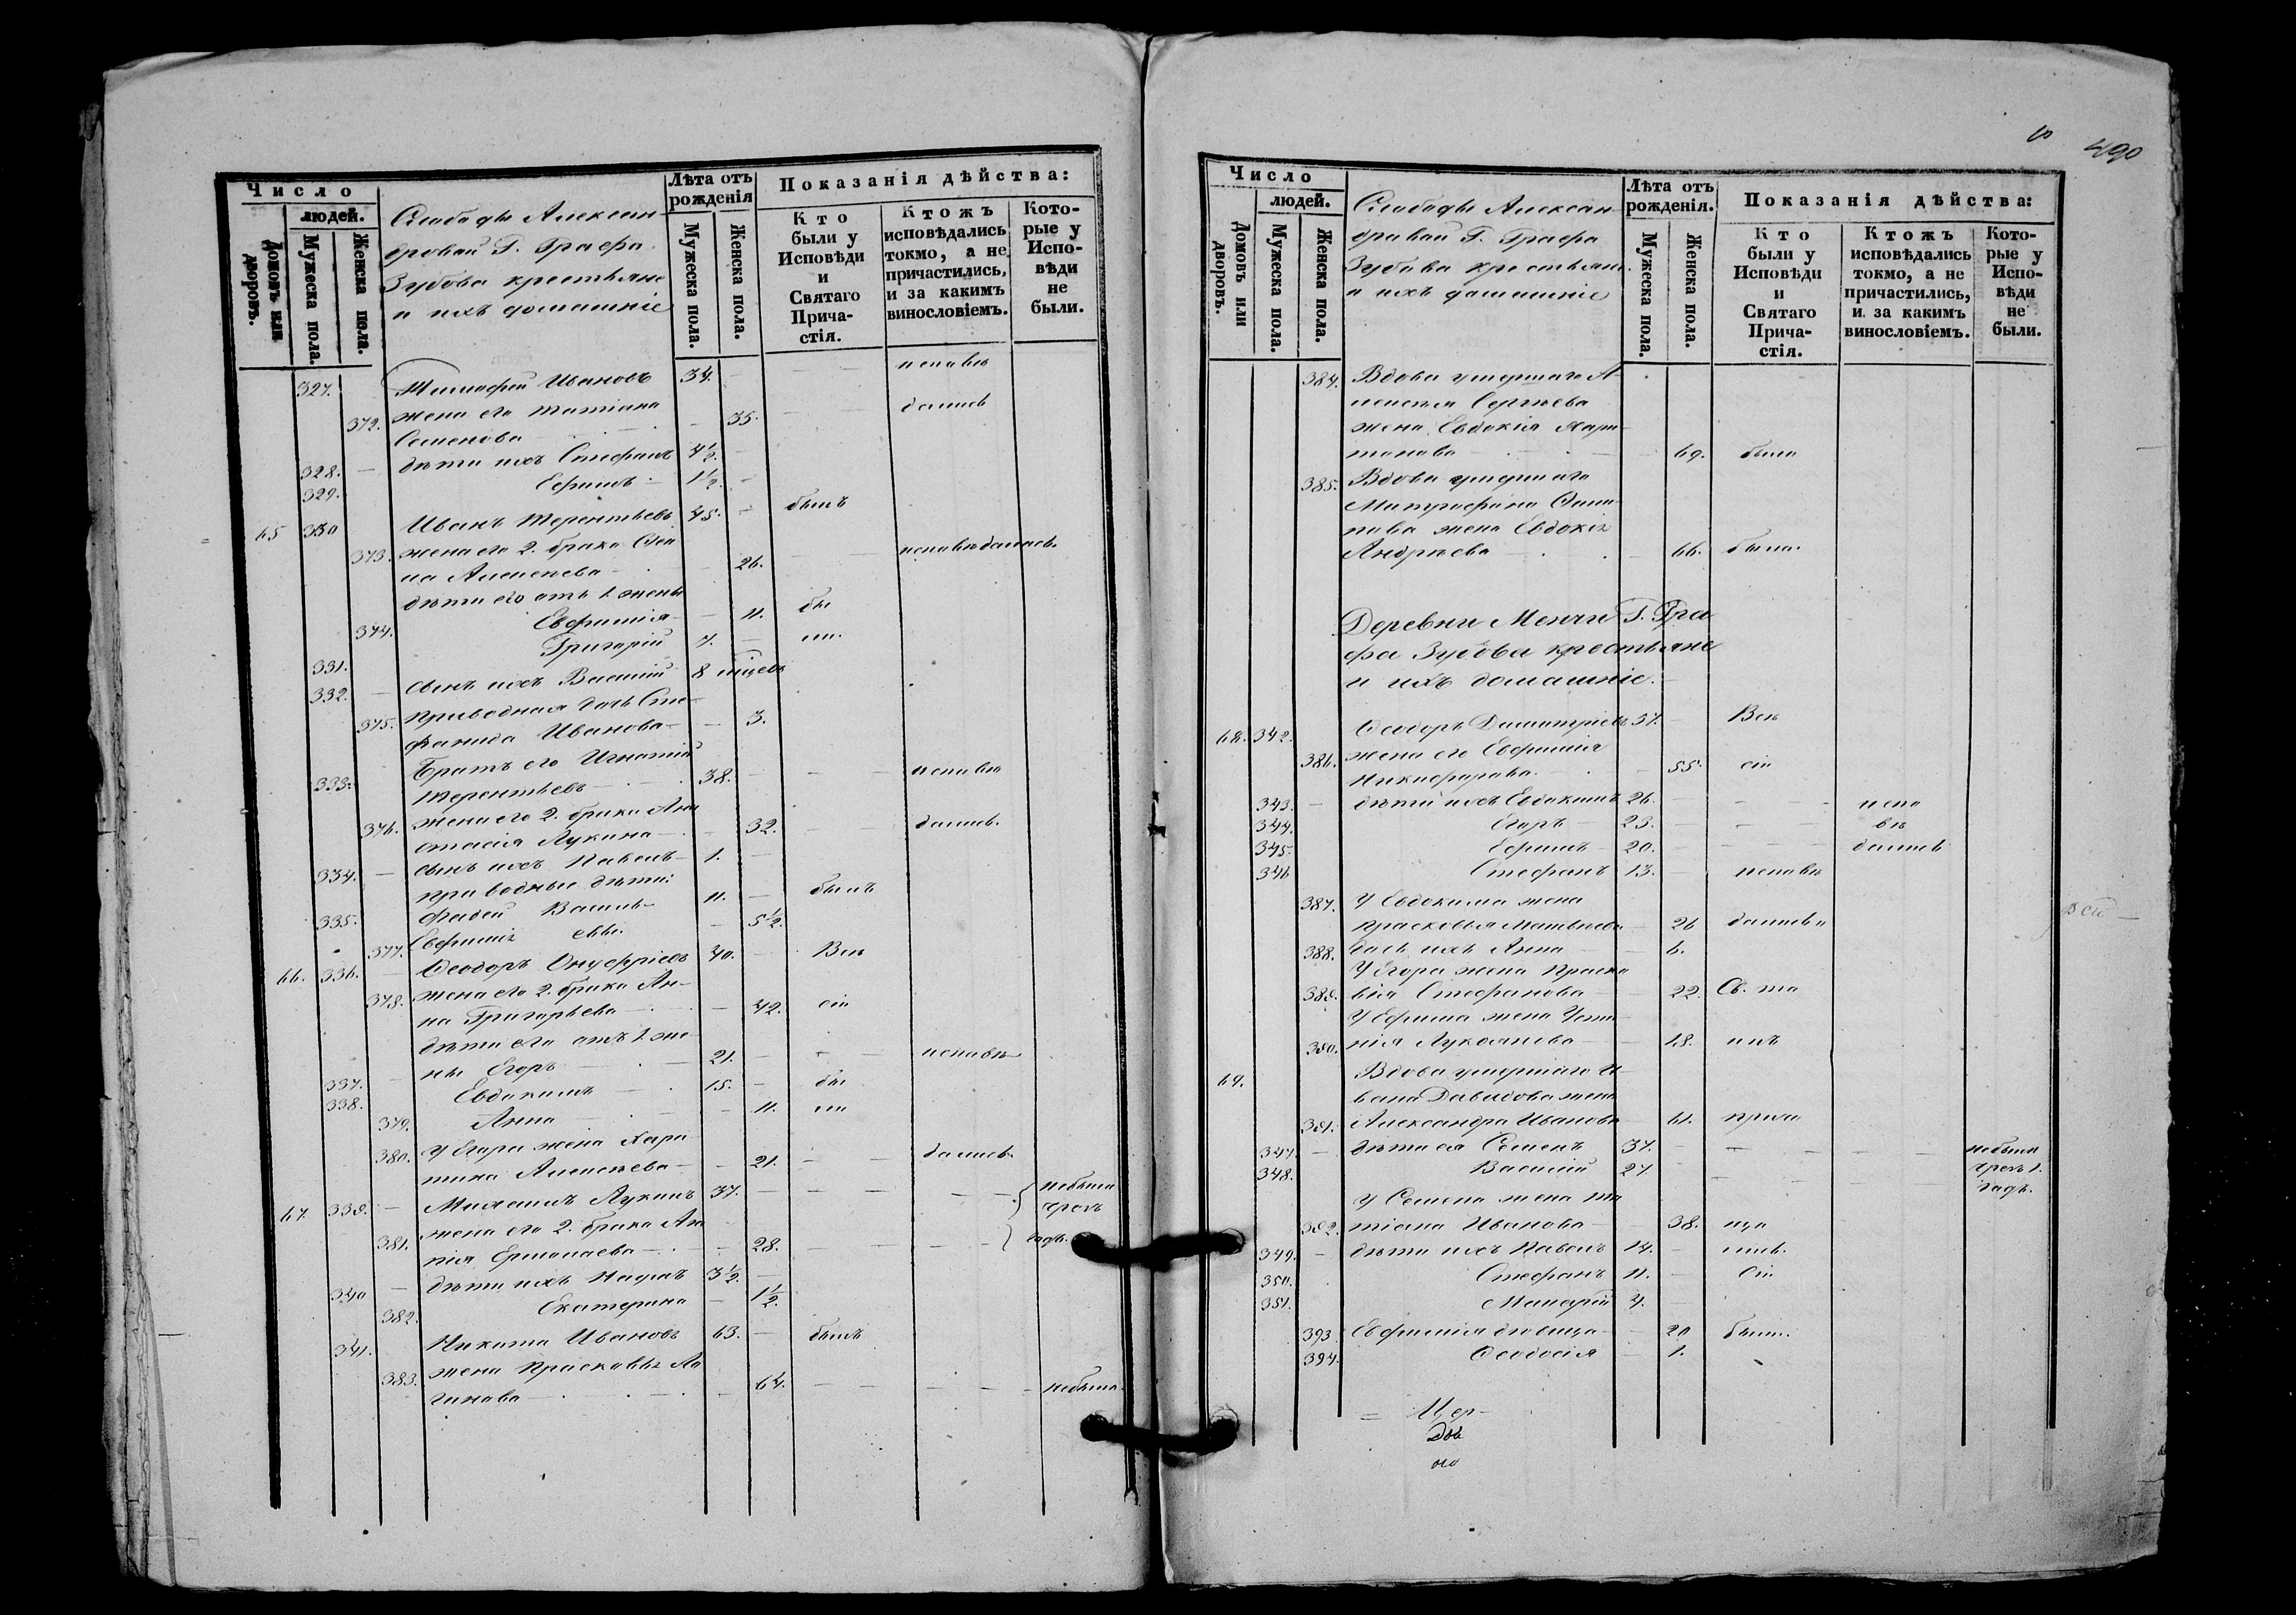 Число
людей.
Домовъ или дворовъ.
Мужеска пола.
Женска пола.
Слободы Александ-
ровой Г. Графа
Зубова крестьяне
и ихъ домашніе
Лѣта отъ рожденія
Мужеска пола.
Женска пола.
Показанія дѣйства:
Кто были у Исповѣди и Святаго Прича- стія.
Ктожъ исповѣдались токмо, а не причастились, и за какимъ винословіемъ.
Кото- рые у Испо- вѣди не были.
327. Тимофей Ивановъ 34. исповѣ
372. жена его Татіана 35. дались
Семенова
328. дѣти ихъ Стефанъ 4½.
329. Ефимъ 1½.
65 330 Иванъ Терентьевъ 45. былъ
373. жена его 2. брака
на Алексѣева 26. исповѣдалась.
дѣти его отъ 1. жены
374. Евфимія 11. бы
331. Григорій 7. ли.
332. сынъ ихъ Василій 8 мцевъ
375. приводная дочь Сте-
фанида Иванова 3.
Братъ его Игнатій
333. Терентьевъ 38. исповѣ
376. жена его 2. брака Ана
стасія Лукина 32. дались.
334. сынъ ихъ Павелъ 1.
приводные дѣти:
335. Фадей Василь- 11. былъ
377. Евфимія евы. 5½.
66. 336. Ѳеодоръ Онуфріевъ 40. Всѣ
378. жена его 2. брака Ан-
на Григорьева 42. сіи
дѣти его отъ 1. же-
337. ны Егоръ 21. исповѣ
338. Евдокимъ 15. бы
379. Анна 11. ли
380. У Егора жена Хари
тина Алексѣева 21. дались.
67. 339. Михаилъ Лукинъ 37. небыли
чрезъ
381. жена его 2. брака
Ермолаева 28. годъ.
340 дѣти ихъ 3½.
382. Екатерина 1½.
341. Никита Ивановъ 63. былъ
383. жена Прасковья Ло
гинова 64. небыла.
490
Число
людей.
Домовъ или дворовъ.
Мужеска пола.
Женска пола.
Слободы Алексан-
дровой Г. Графа
Зубова крестьяне
и ихъ домашніе
Лѣта отъ рожденія.
Мужеска пола.
Женска пола.
Показанія дѣйства:
Кто были у Исповѣди и Святаго Прича- стія.
Ктожъ исповѣдались токмо, а не причастились, и за какимъ винословіемъ.
Кото- рые у Испо- вѣди не были.
384. Вдова умершаго А-
лексѣя Сергѣева
жена Евдокія Хари-
тонова 69. была
385. Вдова умершаго
Митрофана
пова жена Евдокія
Андреева 66. была.
Деревни Г. Гра
фа Зубова крестьяне
и ихъ домашніе.
68. 342. Ѳеодоръ Димитріевъ 57. Всѣ
386. жена его Евфимія
Никифорова 55. сіи
343. дѣти ихъ Евдокимъ 26. испо
344. Егоръ 23. вѣ
345. Ефимъ 20. дались
346 Стефанъ 13. исповѣ
387. У Евдокима жена
Прасковья Матвѣева 26 дались и
388. дочь ихъ Анна 6.
У Егора жена Праско
389. вія Стефанова 22. Св. та
У Ефима жена
390. нія Лукьянова 18. инъ
69. Вдова умершаго И-
вана Давидова жена
391. Александра Иванова 61. прича
347. дѣти ея Семенъ 37. небыли
348. Василій 27. чрезъ 1.
годъ.
У Семена жена Та
392. тіана Иванова 38. ща
349. дѣти ихъ Павелъ 14. лись.
350. Стефанъ 11. Сіи
351. Макарій 4.
393. Евфимія дѣвица 20 были.
394. Ѳеодосія 1.
= Іер-